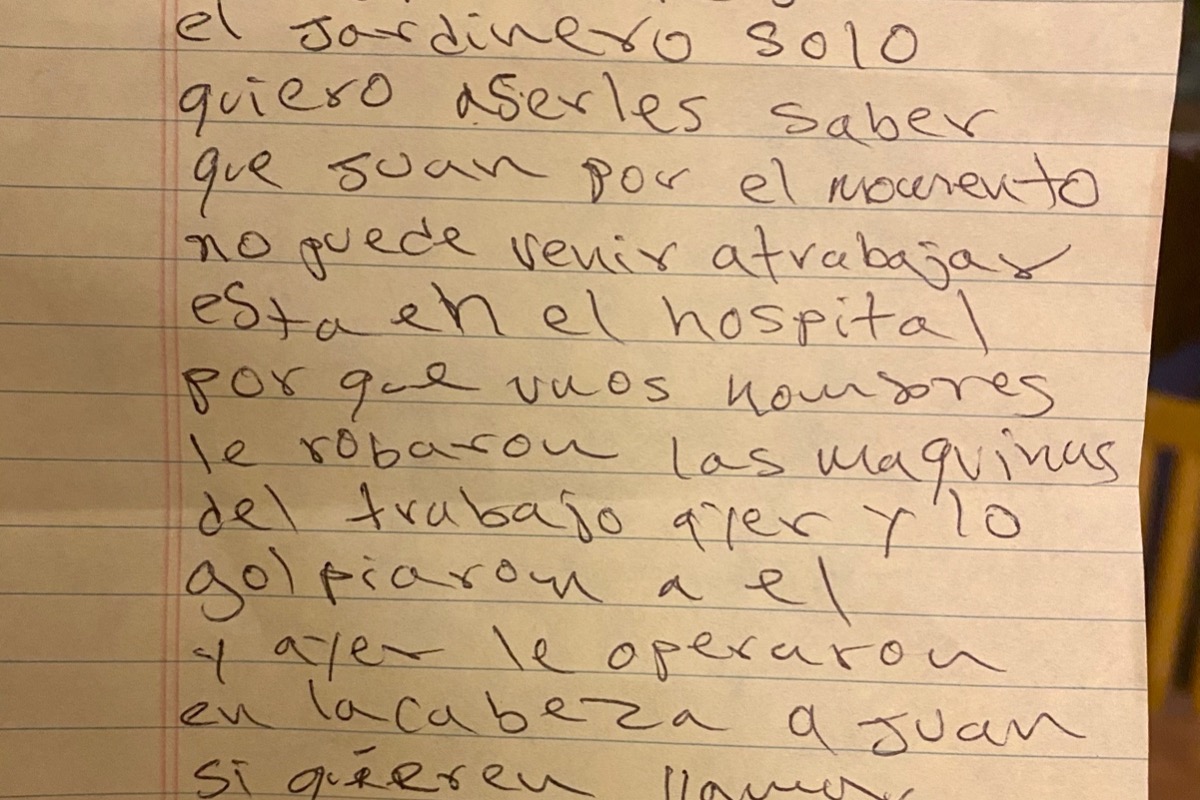 el Jardinero solo
quiero aSerles saber
que Juan por el momento
no puede venir atrabajar
esta en el hospital
por que unos hombres
le robaron las maquinas
del trabajo ayer y lo
golpiaron a el
y ayer le operaron
en la cabeza a Juan
si quieren llamar